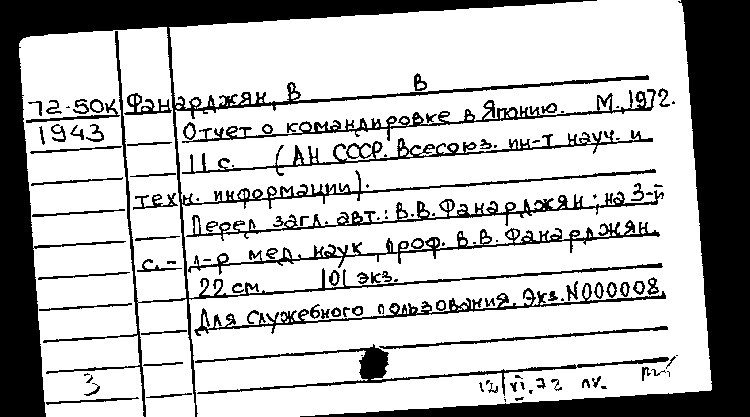 72-50К Фанарджян, В В
1943 Отчет о командировке в Японию. М., 1972.
11 с. (АН СССР. Всесоюз. ин-т науч. и
техн. информации).
Перед загл. авт.: В.В. Фанарджян; на 3-й
с. - д-р мед. наук, проф. В.В. Фанарджян.
22 см. 101 экз.
Для служебного пользования. Экз. N000008.
3
12/VI.72